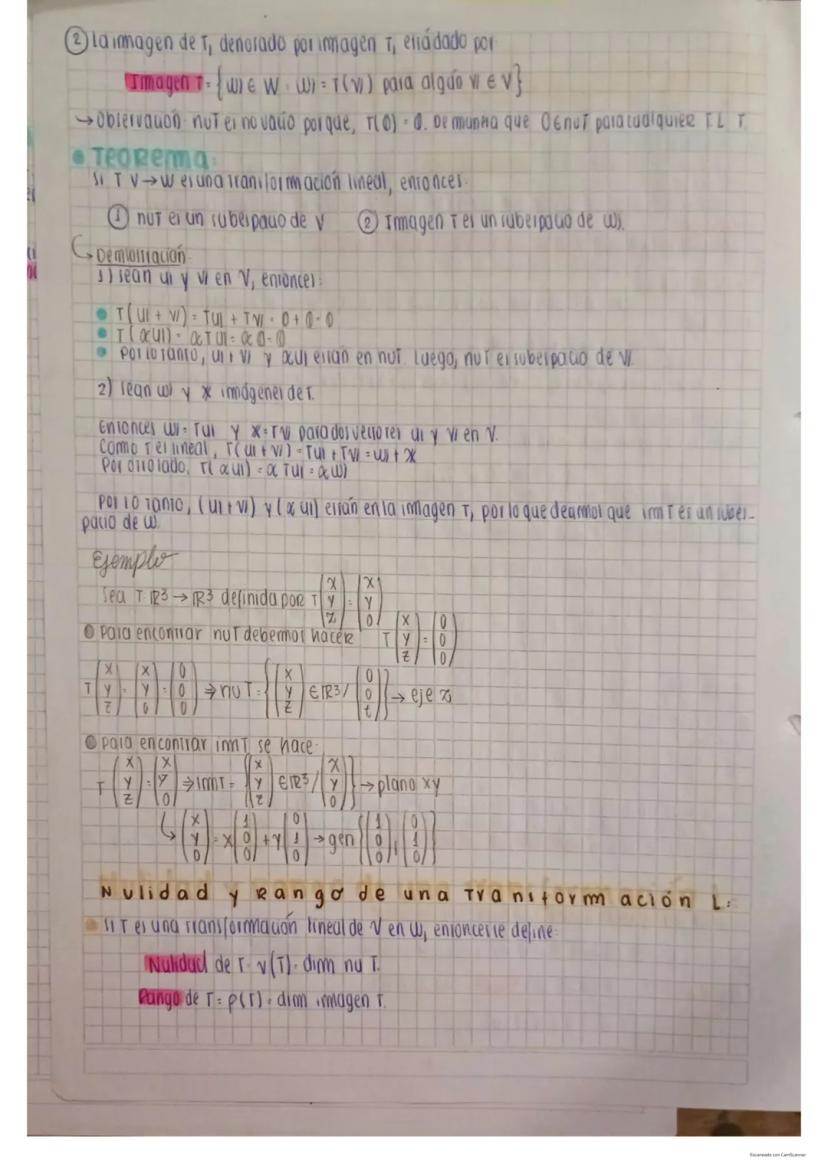 ② La imagen de T, denotado por imagen T, está dado por
Imagen T = { w ∈ W : w = T(v) para algún v ∈ V }
→ Observación: nu T es no vacío porque, T(0) = 0. De manera que 0 ∈ nu T para cualquier T.L T.
• TEOREMA:
Si T: V → W es una transformación lineal, entonces:
① nu T es un subespacio de V ② Imagen T es un subespacio de W.
↳ Demostración
1) sean u y v en V, entonces:
• T(u + v) = Tu + Tv = 0 + 0 = 0
• T(αu) = αTu = α0 = 0
• Por lo tanto, u + v y αu están en nu T. Luego, nu T es subespacio de V.
2) sean w y x imágenes de T.
Entonces w = Tu y x = Tv para dos vectores u y v en V.
Como T es lineal, T(u + v) = Tu + Tv = w + x
Por otro lado, T(αu) = αTu = αw
Por lo tanto, (u + v) y (αu) están en la imagen T, por lo que decimos que im T es un subes-
pacio de W.
Ejemplo
Sea T: ℝ3 → ℝ3 definida por T (x y z) = (x y 0)
• Para encontrar nu T debemos hacer T (x y z) = (0 0 0)
T (x y z) = (x y 0) = (0 0 0) ⇒ nu T = { (x y z) ∈ ℝ3 / (0 0 t) } → eje z
• para encontrar im T se hace:
T (x y z) = (x y 0) ⇒ im T = { (x y z) ∈ ℝ3 / (x y 0) } → plano xy
↳ (x y 0) = x (1 0 0) + y (0 1 0) → gen { (1 0 0), (0 1 0) }
Nulidad y Rango de una Transformación L:
• Si T es una transformación lineal de V en W, entonces se define:
Nulidad de T = ν(T) = dim nu T.
Rango de T = ρ(T) = dim imagen T.
Escaneado con CamScanner